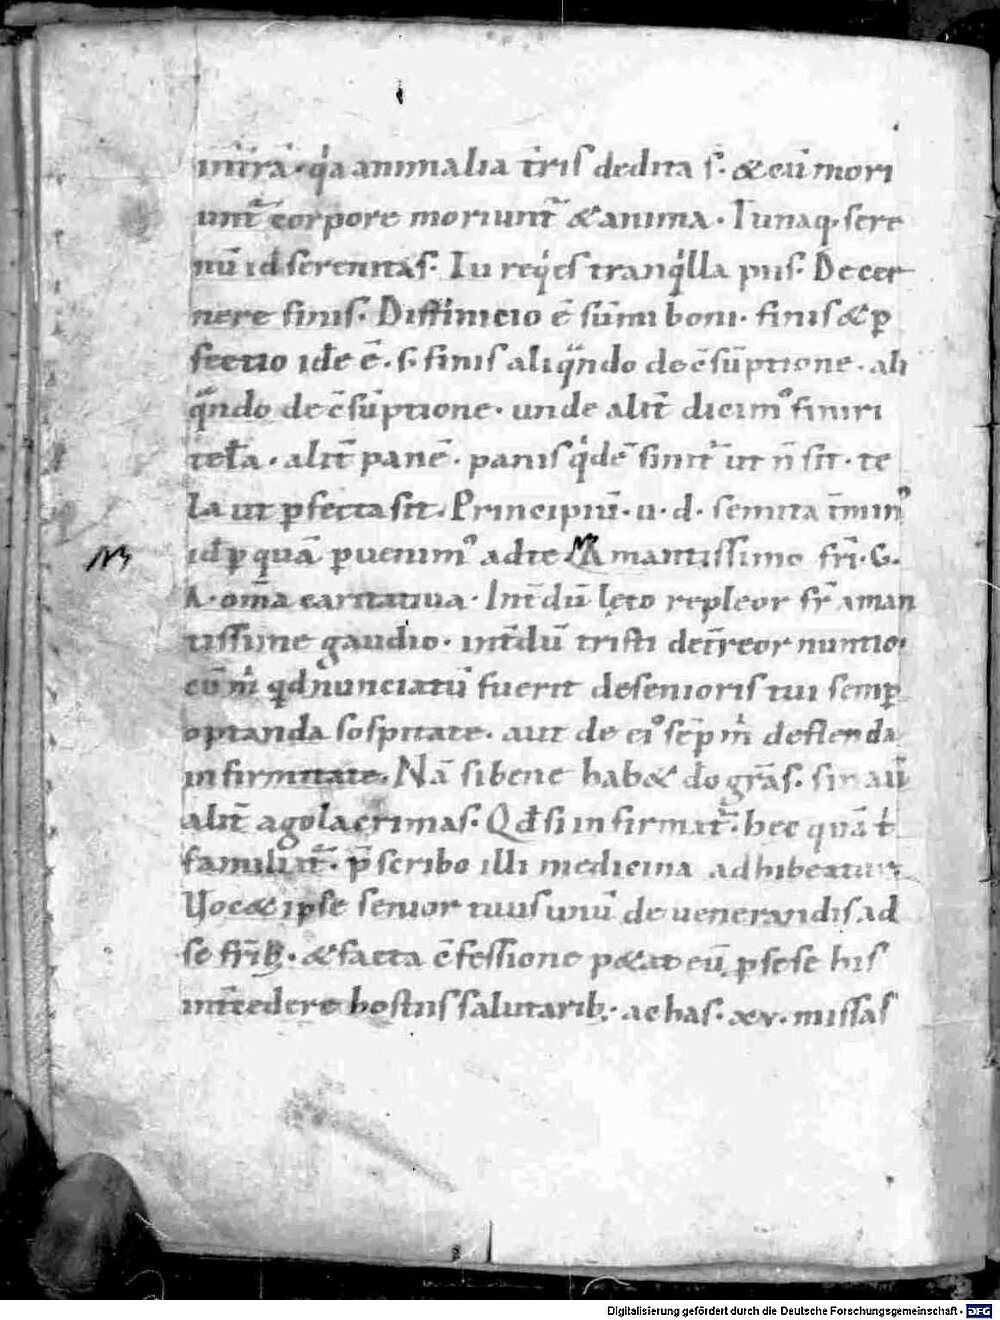 int̄ rā· q̇a animalia t̄ris dedita s̄· & cū mori
unt̄ corpore moriunt̄ & anima· Tu naq· sere
nū id serenitas· Tu req̇es tranq̇lla piis· Decer
nere finis· Diffinicio ē sūmi boni· finis & p
fectio idē ē· s· finis aliq̄ndo de c̄sūptione· ali
q̄ndo de c̄sūptione· unde alit̄ dicimꝰ finiri
telā· alit̄ panē· panis q̇dē finit̄ ut n̄ sit· te
la ut pfecta sit· Principiū· u· d· semita t̄minꝰ
id p quā puenimꝰ ad te M Amantissimo fr̄i· G·
A· om̄a caritatiua· Int̄dū lęto repleor fr̄ aman
tissime gaudio· int̄dū tristi det̄reor nuntio·
cū ṁ qd nunciatū fuerit de senioris tui semp
optanda sospitate· aut de eiꝰ sēp ṁ deflenda
infirmitate· Nā si bene hab& do grās· sin aū
alit̄ ago lacrimas· Qđ si infirmat̄· hec quā t̄
familiit̄· p̄scribo illi medicina adhibeatur
Uoc& ipse senior tuus unū de uenerandis ad
se fr̄ib;· & facta c̄fessione p&at eū p se se his
int̄cedere hostiis salutarib;· ac has· xv· missas
M
Digitalisierung gefördert durch die Deutsche Forschungsgemeinschaft - DFG